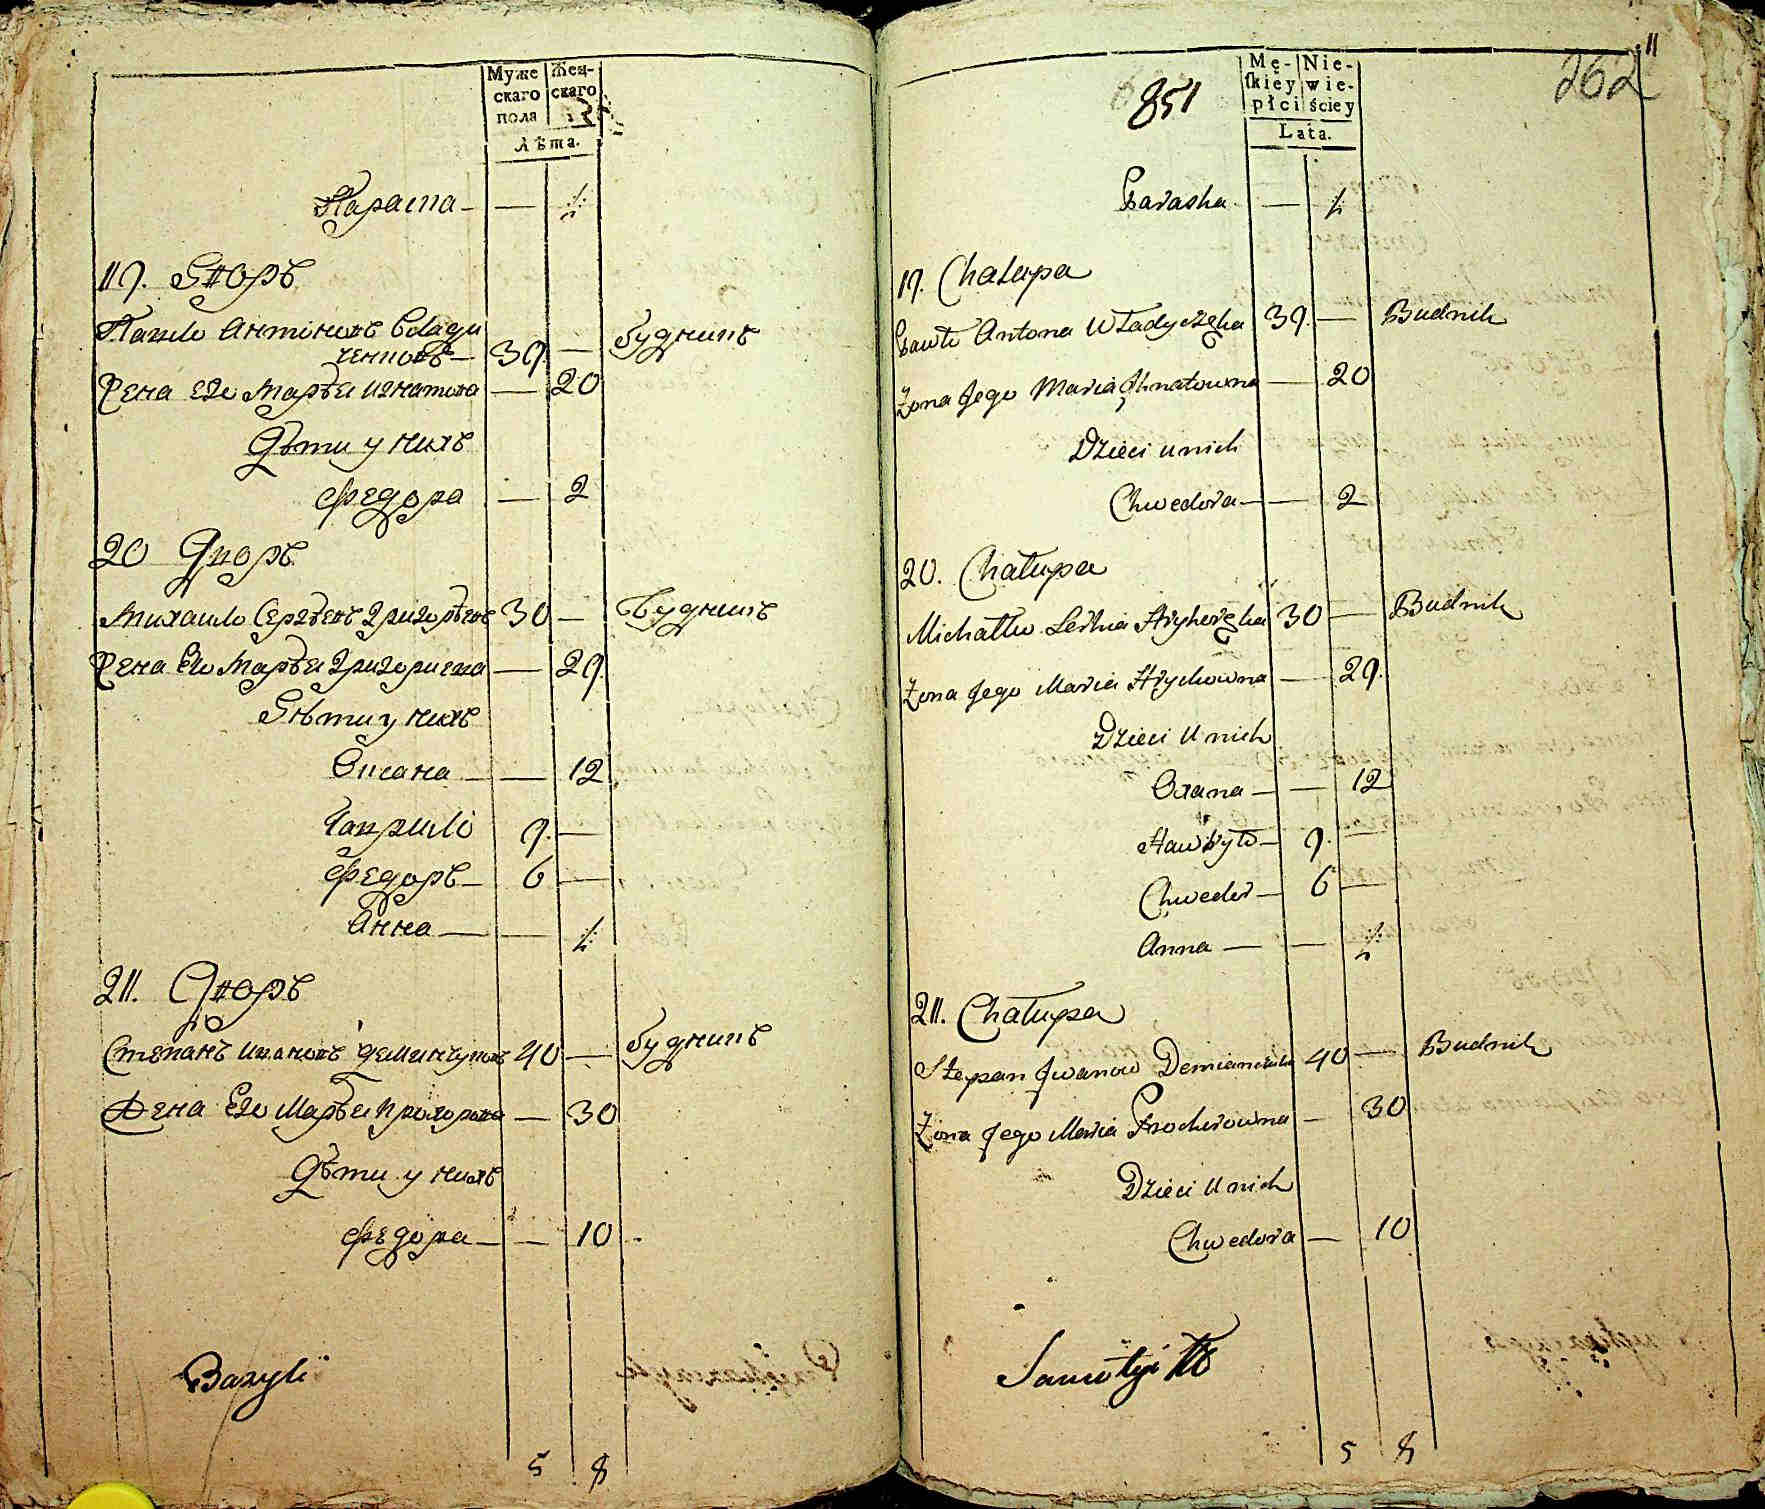 Муже
скаго
пола
Жен-
скаго
Лѣта.
Параска — — ·/.
19. Дворъ
Павло Антоновъ Влади
ченковъ — 39. — будникъ
Жена Его Марѣя игнатова — 20
Дѣти у нихъ
Федора — 2
20 Дворъ
Михайло Сергѣевъ Григорѣевъ 30 — Будникъ
Жена Его Марѣя Григориева — 29.
Дѣти у нихъ
Оксана — — 12
Гаврило 9. —
Федоръ — 6 —
Анна — — ·/.
21. Дворъ
Степанъ Ивановъ Деминчуковъ 40 — будникъ
Жена Его Марѣя Прохорова — 30
Дѣти у нихъ
Федора — — 10
Bazyli
5 8
11
262
851
Mę-
skiey
płci
Nie-
wie-
ściey
Lata.
Paraska — ·/.
19. Chałupa
Pawło Antona Władyczęka 39. — Budnik
Żona Jego Maria Jhnatowna — 20
Dzieci u nich
Chwedora — — 2
20. Chałupa
Michałło Serhia Hryhoręka 30 — Budnik
Żona Jego Maria Hrychowna — 29.
Dzieci u nich
Oxana — — 12
Hawryło — 9. —
Chweder — 6 —
Anna — — ·/.
21. Chałupa
Stepan Jwanow Demianczuka 40 — Budnik
Żona Jego Maria Prochorowna — 30
Dzieci u nich
Chwedora — 10
5 8